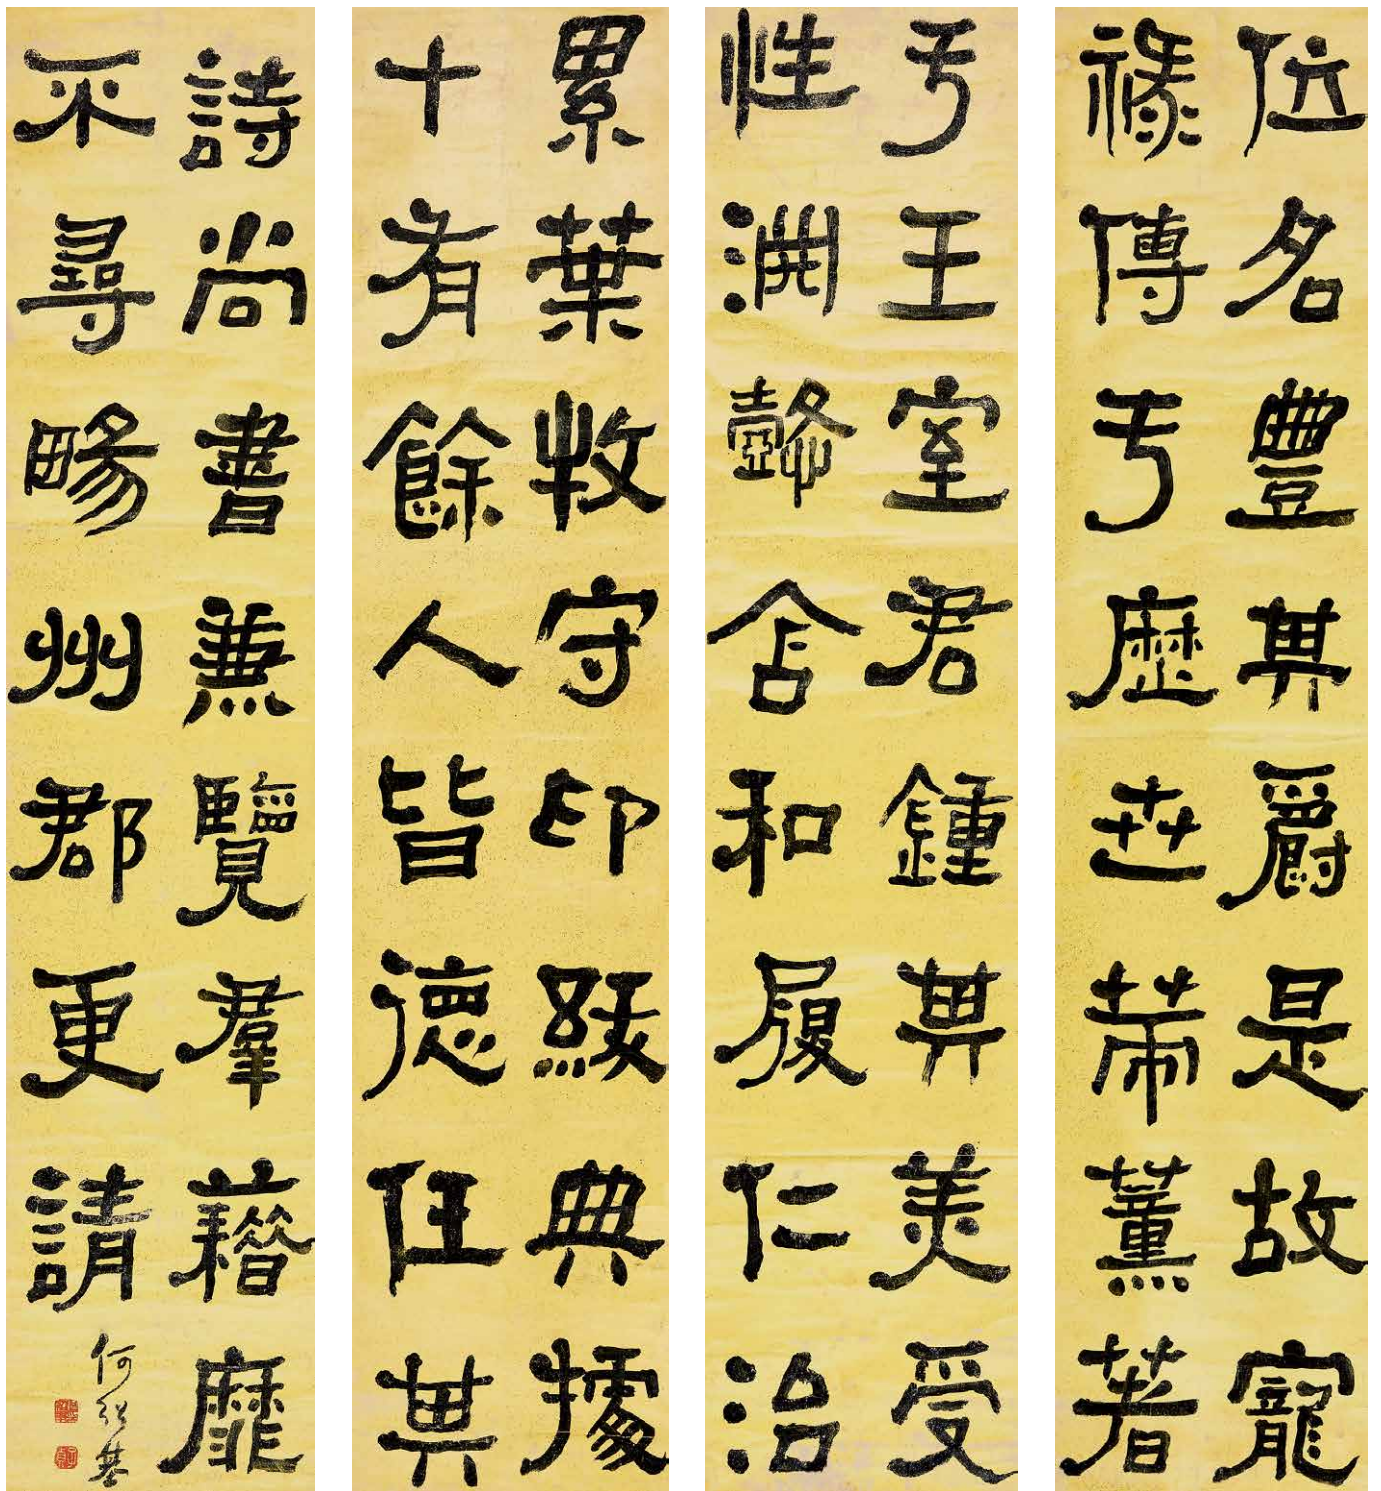 位名豐其爵是故寵
祿傳于歷世策薰著
于王室君鍾其美受
性淵懿含和履仁治
累葉牧守印紱典據
十有餘人皆德任其
詩尚書兼覽羣藉靡
不尋畼州郡更請
何紹基